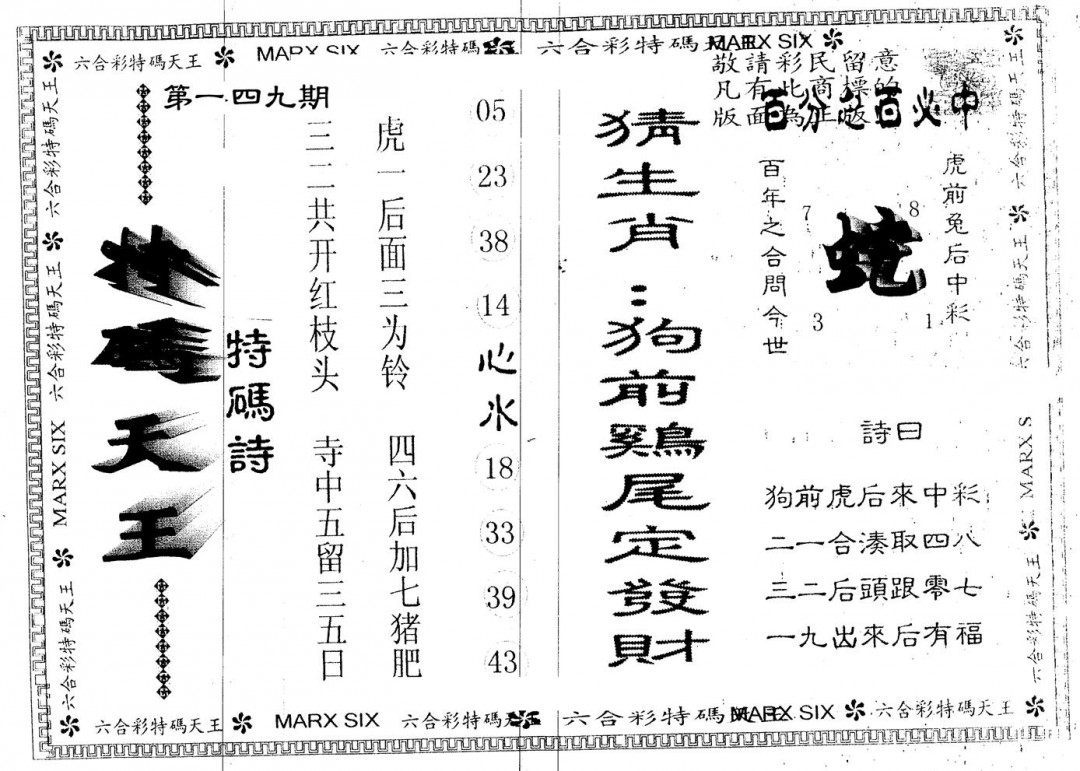 六合彩特碼天王 MARX SIX 六合彩特碼 六合彩特碼 MARX SIX
敬請彩民留意
凡有此商標的
版面為正版
百分之百必中
第一四九期
特碼天王
特碼詩
三二共开红枝头 寺中五留三五日
虎一后面三为铃 四六后加七猪肥
05
23
38
14
心水
18
33
39
43
猜生肖：狗前鷄尾定發財
百年之合問今世
7 8
蛇
3 1
虎前兔后中彩
詩曰
狗前虎后來中彩
二一合湊取四八
三二后頭跟零七
一九出來后有福
六合彩特碼天王 六合彩特碼天王 MARX SIX 六合彩特碼天王
六合彩特碼天王 六合彩特碼天王 MARX S 六合彩特碼天王
六合彩特碼天王 MARX SIX 六合彩特碼天 六合彩特碼 MARX SIX 六合彩特碼天王